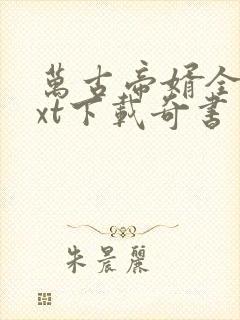 萬古帝婿全
xt下載奇書
朱晨麗